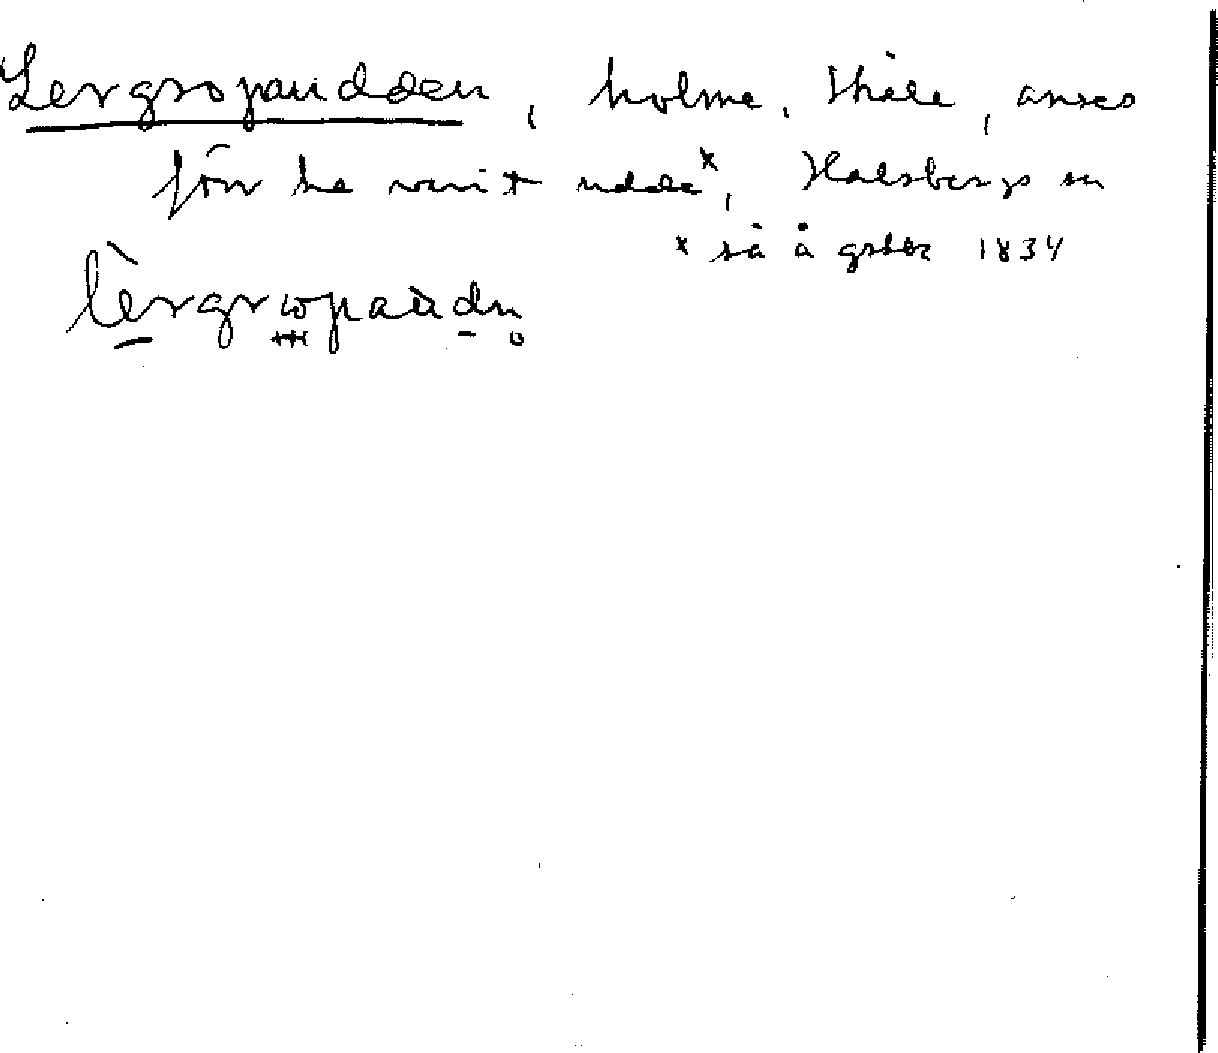 Lergropaudden, holme, Skåle, anses
förr ha varit udde×, Halsbergs sn
× så å gstkt 1834
lèrgropaùdn